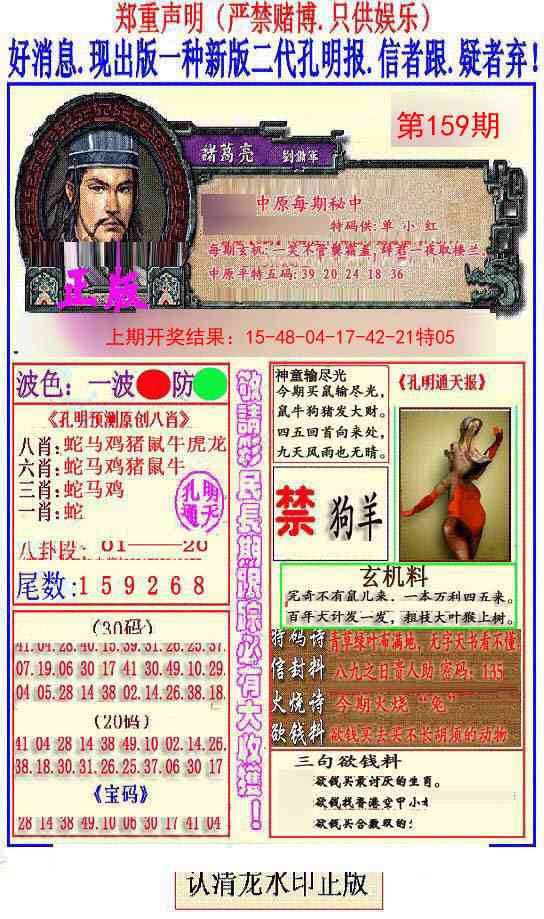 郑重声明（严禁赌博.只供娱乐）
好消息.现出版一种新版二代孔明报.信者跟.疑者弃！
第159期
諸葛亮
中原每期秘中
特码供:单 小 红
中原平特五码:39 20 24 18 36
正版
上期开奖结果：15-48-04-17-42-21特05
波色：一波 防
《孔明预测原创八肖》
八肖:蛇马鸡猪鼠牛虎龙
六肖:蛇马鸡猪鼠牛
三肖:蛇马鸡
一肖:蛇
孔明
通天
八卦段：01——20
尾数:159268
(30码)
41.04.28.40.15.39.31.26.25.37.
07.19.06 30 17 41 30.49.10.29
04 05.28 14 38 02.14.26.38.18.
(20码)
41 04 28 14 38 49.10 02.14.26.
38.18.30.31.26.25.37.06 30 17
《宝码》
28 14 38 49.10 06 30 17 41 04
敬請彩民長期跟踪必有大收獲！
神童输尽光
今期买鼠输尽光，
鼠牛狗猪发大财。
四五回首向来处，
九天风雨也无晴。
《孔明通天报》
禁 狗羊
玄机料
完奇不有鼠儿来，一本万利四五来。
百年大计发一发，粗枝大叶猴上树。
特码诗 青草绿叶布满地，无字天书看不懂
信封料 八九之日贵人助 密码：135
火烧诗 今期火烧“兔”
欲钱料 欲钱买去买不长胡须的动物
三句欲钱料
欲钱买最讨厌的生肖。
欲钱找香港空甲小
欲钱买合数双的:
认清龙水印正版